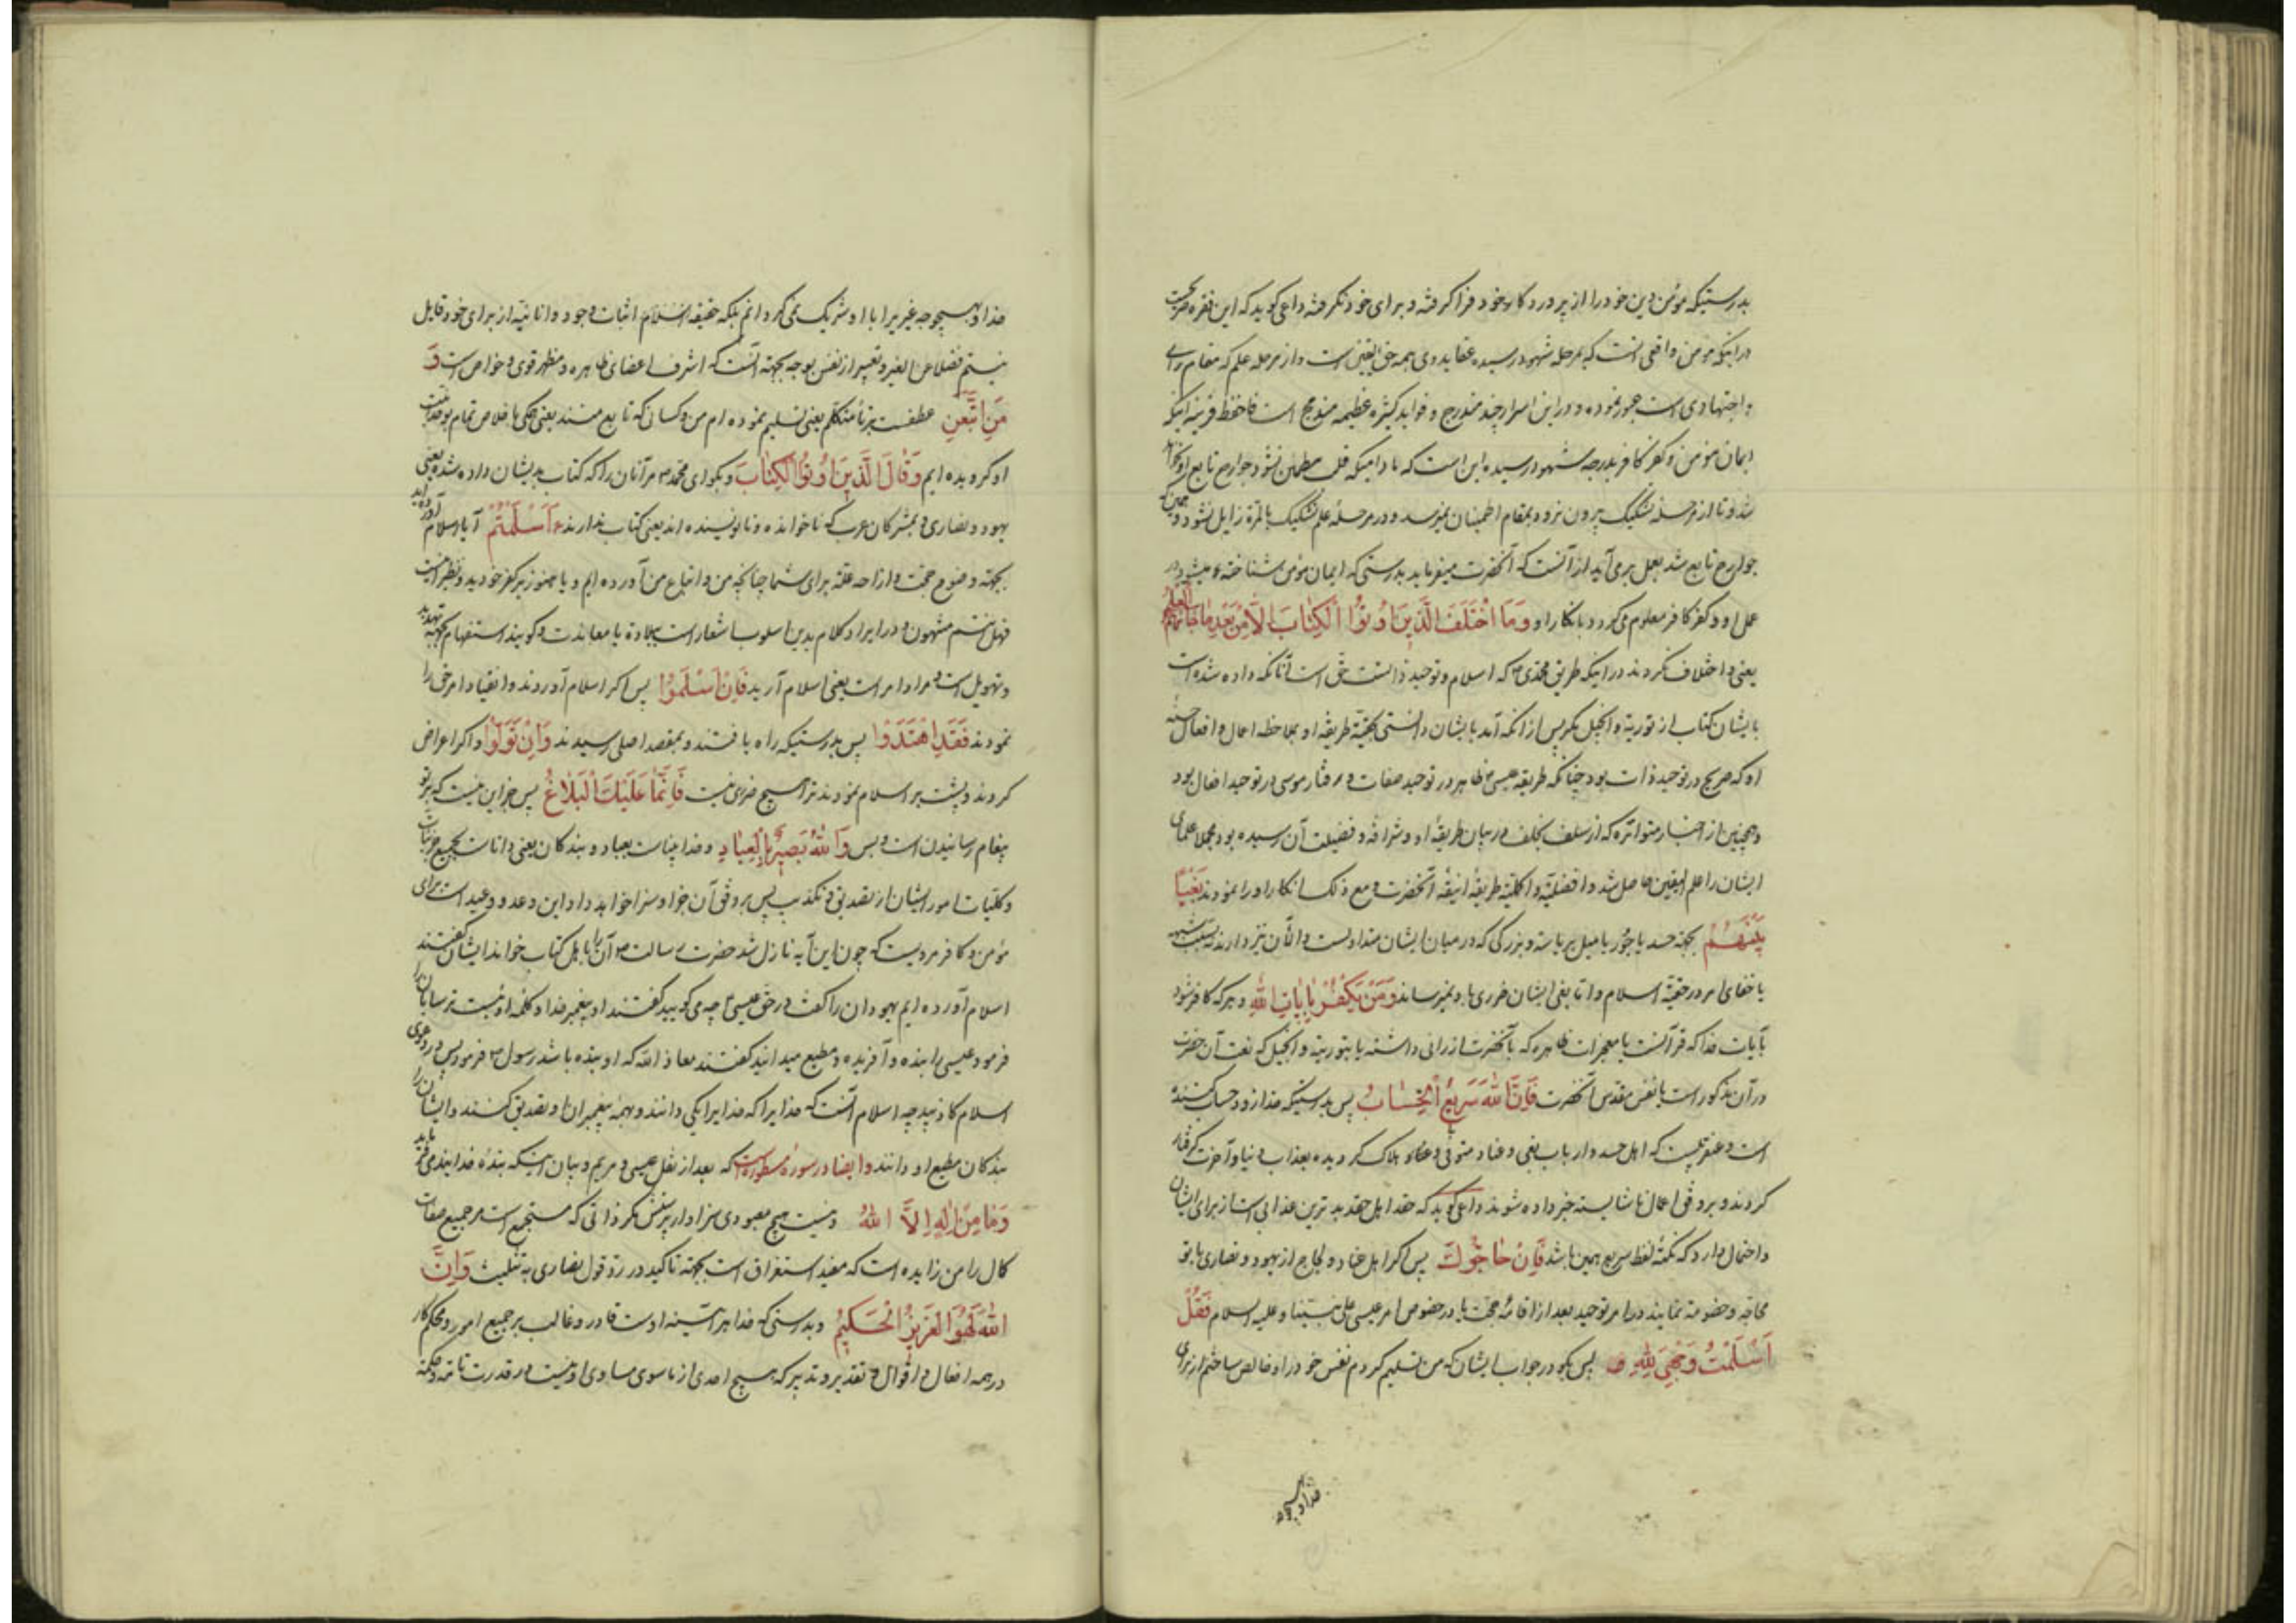 بدرستیکه مؤمن دین خود را از پروردکار خود فرا کرفته و برای خود نکرفته داعی کوید که این فقره صریحست
در اینکه مومن واقعی آنست که بمرحله شهود رسیده عقاید وی همه حق الیقین است و از مرحله علم که مقام رای
و اجتهادی است عبور نموده و در این اسرار چند مندرج و فواید کثیره عظیمه مندمج است فاحفظ قرینه اینکه
ایمان مومن و کفر کافر بدرجه شهود رسیده این است که مادامیکه قلب مطمئن نشود جوارح تابع او نخواهد
شد و تا از مرحله تشکیک بیرون نرود بمقام اطمینان نمیرسد و در مرحله علم تشکیک بالمرة زایل نشود و چون
جوارح تابع شد بعمل برمی آید از آنست که آنحضرت میفرماید بدرستی که ایمان مومن شناخته میشود در
عمل او و کفر کافر معلوم می کردد بانکار او وَمَا اخْتَلَفَ الَّذِينَ أُوتُوا الْكِتَابَ إِلَّا مِنْ بَعْدِ مَا جَاءَهُمُ الْعِلْمُ
یعنی و اختلاف نکردند در اینکه طریق محمدی ص که اسلام و توحید ذاتست حق است آنانکه داده شده است
بایشان کتاب از توریة و انجیل مکر پس از آنکه آمد بایشان دانستی بحقیّة طریقه او بملاحظه اعمال و افعال حسنه
او که صریح در توحید ذات بود چنانکه طریقه عیسی ع ظاهر در توحید صفات و رفتار موسی در توحید افعال بود
و همچنین از اخبار متواتره که از سلف بخلف در بیان طریقه او و شرافة و فضیلت آن رسیده بود مجملا علمای
ایشان را علم الیقین حاصل شد و افضلیّة و اکملیّة طریقه انیقه آنحضرت و مع ذلک انکار او را نمودند بَغْيًا
بَيْنَهُمْ بجهة حسد یا جور یا میل بریاسة و بزرکی که در میان ایشان متداولست و الآن نیز دارند نه بسبب شبهه
یا خفای امر در حقیّة اسلام و اتا بغی ایشان ضرری باو نمیرساند وَمَنْ يَكْفُرْ بِآيَاتِ اللَّهِ و هر که کافر شود
بآیات خدا که قرآنست یا معجزات ظاهره که بآنحضرت ارزانی داشته یا بتوریة و انجیل که نعت آن حضرت
در آن مذکور است یا نفس مقدس آنحضرت فَإِنَّ اللَّهَ سَرِيعُ الْحِسَابِ پس بدرستیکه خدا زود حساب کننده
است و عنقریبست که اهل حسد و ارباب بغی و عناد متوفی و هلاک کردیده بعذاب دنیا و آخرت کرفتار
کردند و بر وفق اعمال ناشایسته جزا داده شوند داعی کوید که حقد اهل حقد بدترین عذابی است از برای ایشان
و احتمال دارد که نکتهٔ لفظ سریع همین باشد فَإِنْ حَاجُّوكَ پس اکر اهل عناد و لجاج از یهود و نصاری با تو
محاجه و خصومة نمایند در امر توحید بعد از اقامهٔ حجت یا در خصوص امر عیسی علی نبینا و علیه السلام فَقُلْ
أَسْلَمْتُ وَجْهِيَ لِلَّهِ پس بکو در جواب ایشان که من تسلیم کردم نفس خود را و خالص ساختم از برای
خدا و بهیچوجه
خدا و بهیچوجه غیریرا با او شریک نمی کردانم بلکه حقیقة اسلام اثبات وجود و انانیّة از برای خود قابل
نیستم فضلا عن الغیر و تعبیر از نفس بوجه بجهة آنست که اشرف اعضای ظاهره و مظهر قوی و حواس است وَ
مَنِ اتَّبَعَنِ عطفست بر تاء متکلم یعنی تسلیم نموده ام من و کسانی که تابع منند یعنی همکی باخلاص تمام بوحدانیّت
او کرویده ایم وَقُلْ لِلَّذِينَ أُوتُوا الْكِتَابَ و بکو ای محمد ص مر آنان را که کتاب بدیشان داده شده یعنی
یهود و نصاری و بمشرکان عرب که ناخوانده و نانویسنده اند یعنی کتاب ندارند ءَأَسْلَمْتُمْ آیا اسلام آورده اید
بجهة وضوح حجت و ازاحه علّة برای شما چنانچه من و اتباع من آورده ایم و یا هنوز بر کفر خودید و نظیر اینست
فهل انتم منتهون و در ایراد کلام بدین اسلوب اشعار است ببلادة یا معاندت و کویند استفهام بجهة تهدید
و تهویل است و مراد امر است یعنی اسلام آرید فَإِنْ أَسْلَمُوا پس اکر اسلام آوردند و انقیاد امر حق را
نمودند فَقَدِ اهْتَدَوْا پس بدرستیکه راه یافتند و بمقصد اصلی رسیدند وَإِنْ تَوَلَّوْا و اکر اعراض
کردند و پشت بر اسلام نمودند ترا هیچ ضرری نیست فَإِنَّمَا عَلَيْكَ الْبَلَاغُ پس جز این نیست که بر تو
پیغام رسانیدن است و بس وَاللَّهُ بَصِيرٌ بِالْعِبَادِ و خدا بیناست بعباد و بندکان یعنی داناست بجمیع جزئیات
و کلیات امور ایشان از تصدیق و تکذیب پس بر وفق آن جزا و سزا خواهد داد و این وعد و وعید است برای
مؤمن و کافر مرویست که چون این آیه نازل شد حضرت رسالت ص آن را باهل کتاب خواند ایشان گفتند
اسلام آورده ایم یهودان را کفت در حق عیسی ع چه می کویید کفتند او پیغمبر خدا و کلمه او نیست ترسایان را
فرمود عیسی را بنده و آفریده و مطیع میدانید کفتند معاذ الله که او بنده باشد رسول ص فرمود پس در دعوی
اسلام کاذبید چه اسلام آنست که خدایرا که خدایرا یکی دانند و همهٔ پیغمبران او تصدیق کنند و ایشان را
بندکان مطیع او دانند و ایضا در سورهٔ مسطوره است که بعد از نقل عیسی و مریم و بیان اینکه بندهٔ خدایند می فرماید
وَمَا مِنْ إِلَهٍ إِلَّا اللَّهُ و نیست هیچ معبودی سزاوار پرستش مکر ذاتی که مستجمع است مر جمیع صفات
کمال را من زایده است که مفید استغراق است بجهة تاکید در ردّ قول نصاری به تثلیث وَإِنَّ
اللَّهَ لَهُوَ الْعَزِيزُ الْحَكِيمُ و بدرستی که خدا هر آینه اوست قادر و غالب بر جمیع امور و محکم کار
در همه افعال و اقوال و تقدیر و تدبیر که هیچ احدی از ماسوی مساوی او نیست در قدرت تامه و حکمة